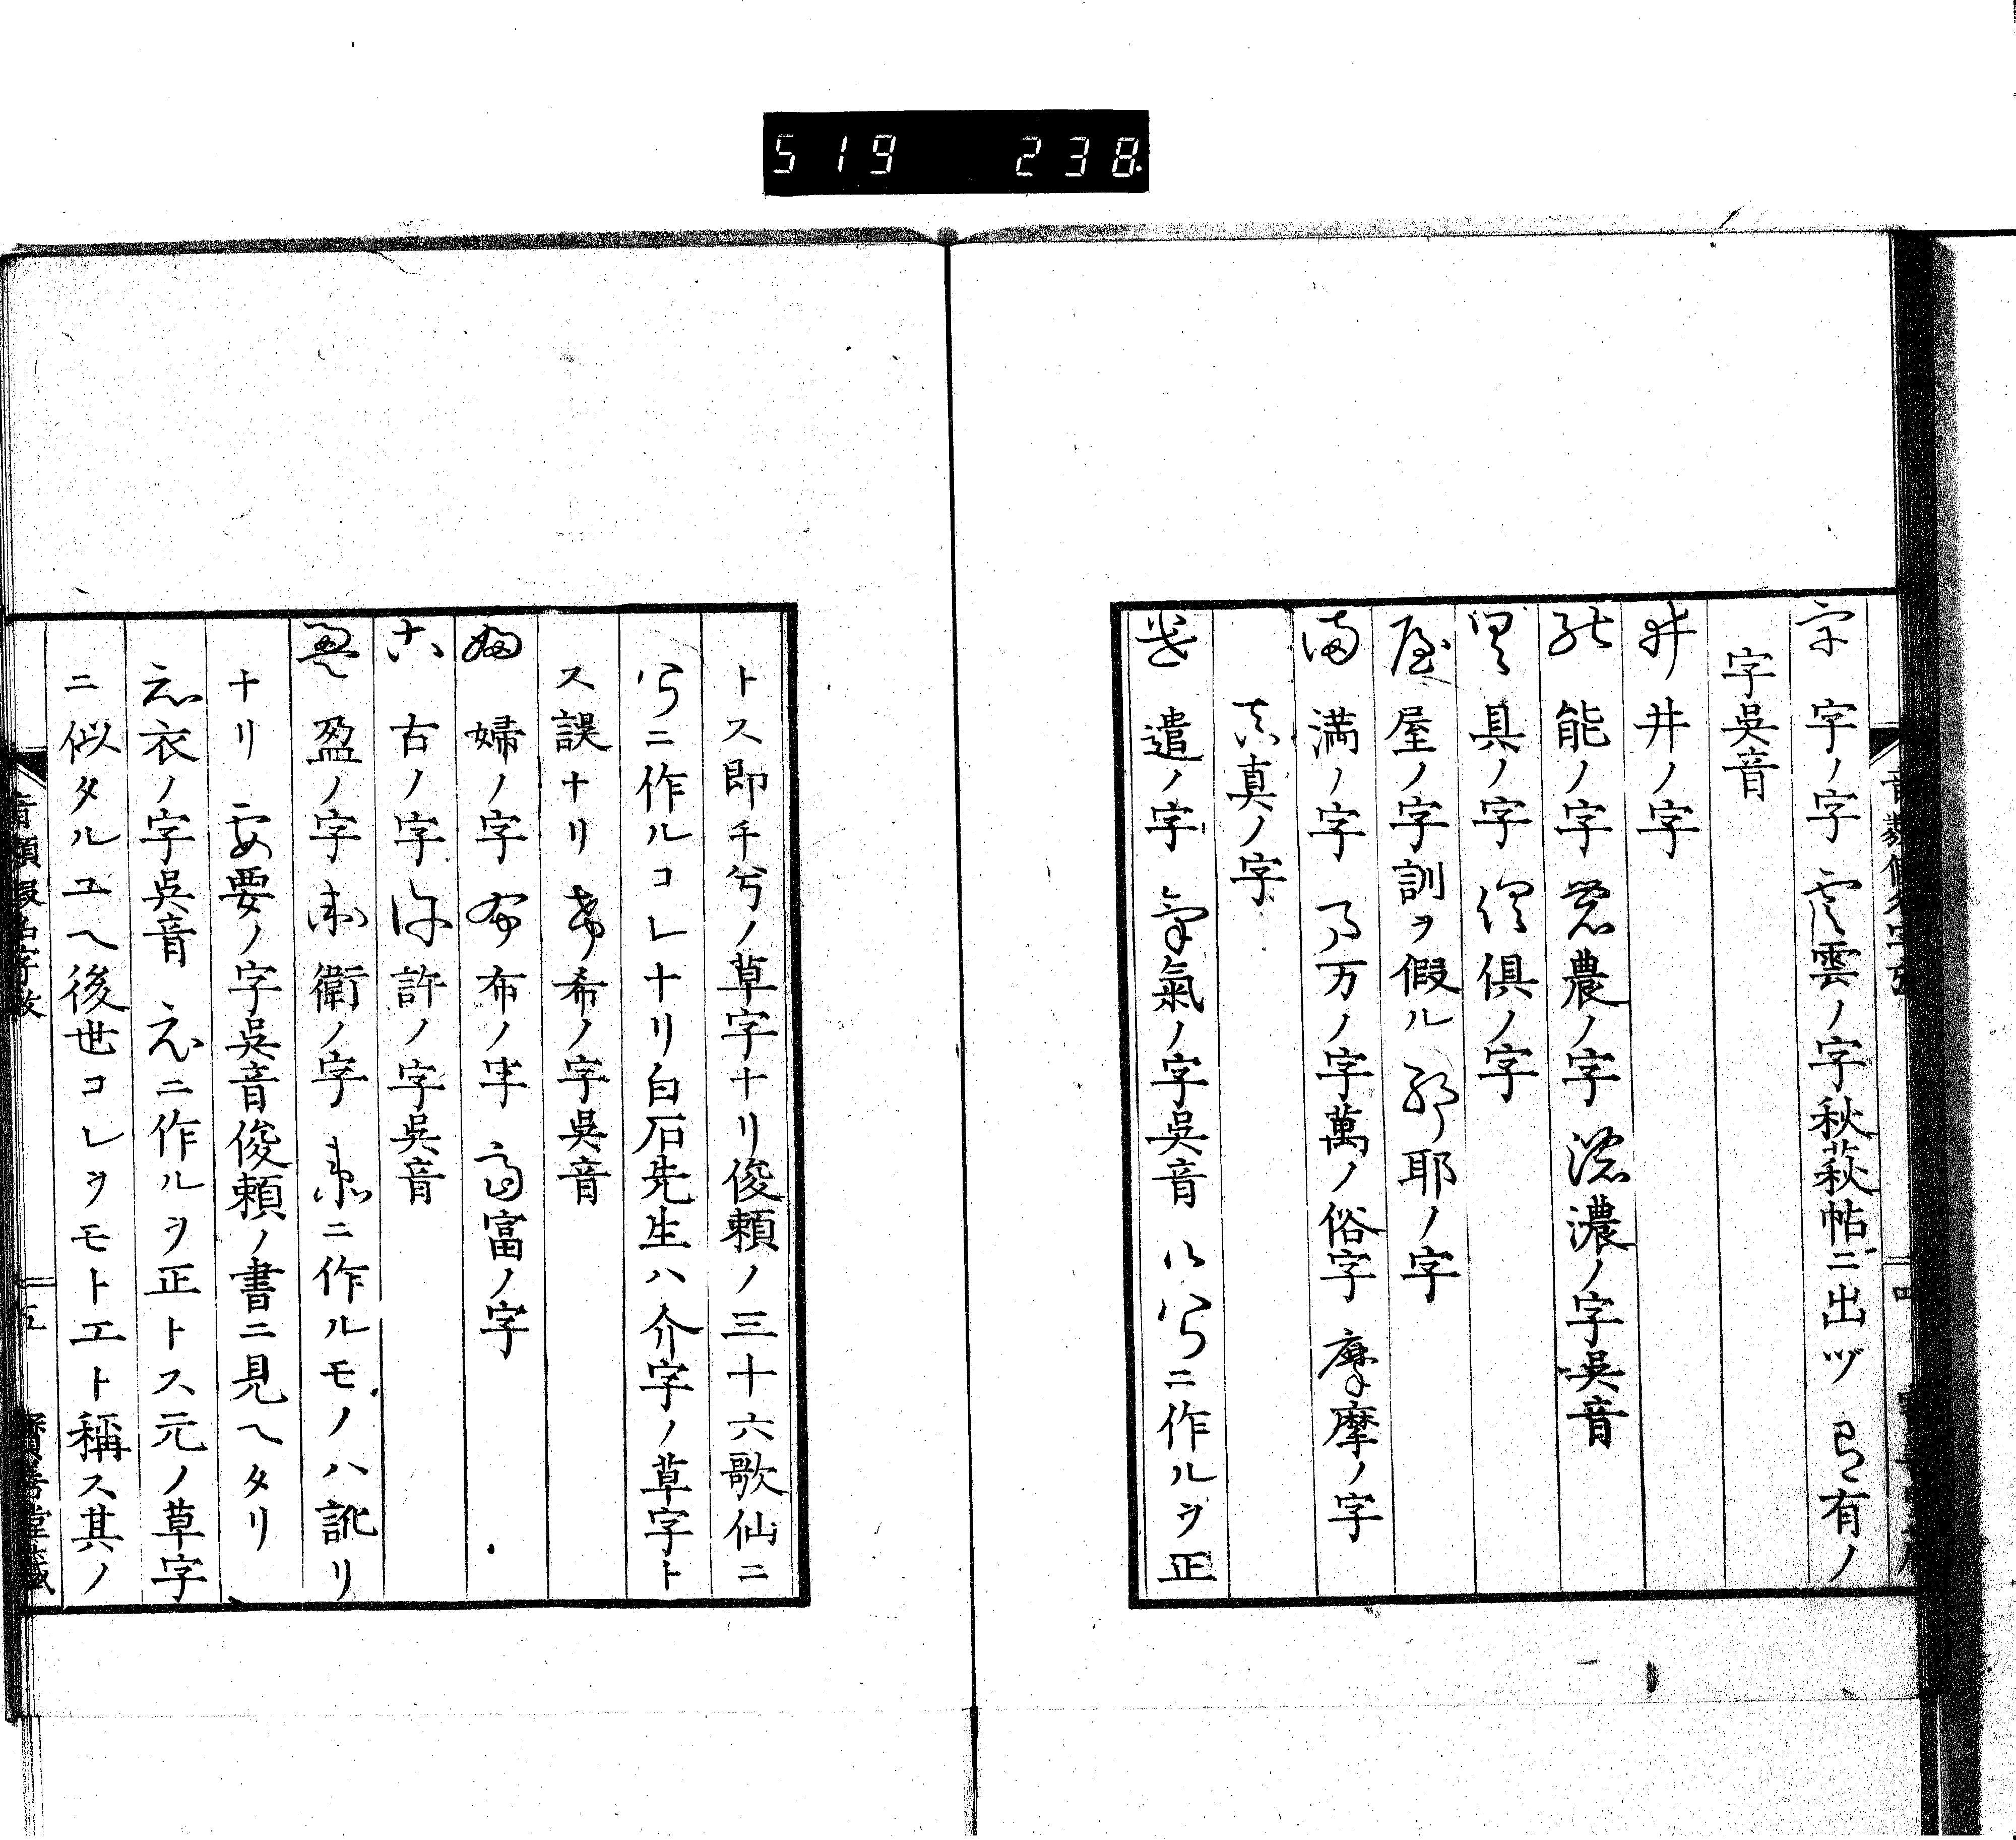 519 238
字 字ノ字 雲雲ノ字秋萩帖ニ出ヅ 有有ノ
字吳音
井 井ノ字
能 能ノ字 農農ノ字 濃濃ノ字吳音
具 具ノ字 俱俱ノ字
屋 屋ノ字訓ヲ假ル 耶耶ノ字
満 満ノ字 万万ノ字萬ノ俗字 摩摩ノ字
真真ノ字
遣 遣ノ字 氣氣ノ字吳音 ニ作ルヲ正
トス即チ兮ノ草字ナリ俊頼ノ三十六歌仙ニ
ニ作ルコレナリ白石先生ハ介字ノ草字ト
ス誤ナリ 希希ノ字吳音
婦 婦ノ字 布布ノ字 富富ノ字
古 古ノ字 許許ノ字吳音
盈 盈ノ字 衛衛ノ字 ニ作ルモノハ訛リ
ナリ 要要ノ字吳音俊頼ノ書ニ見ヘタリ
衣衣ノ字吳音 ニ作ルヲ正トス元ノ草字
ニ似タルユヘ後世コレヲモトエト稱ス其ノ
音類假名字攷 五